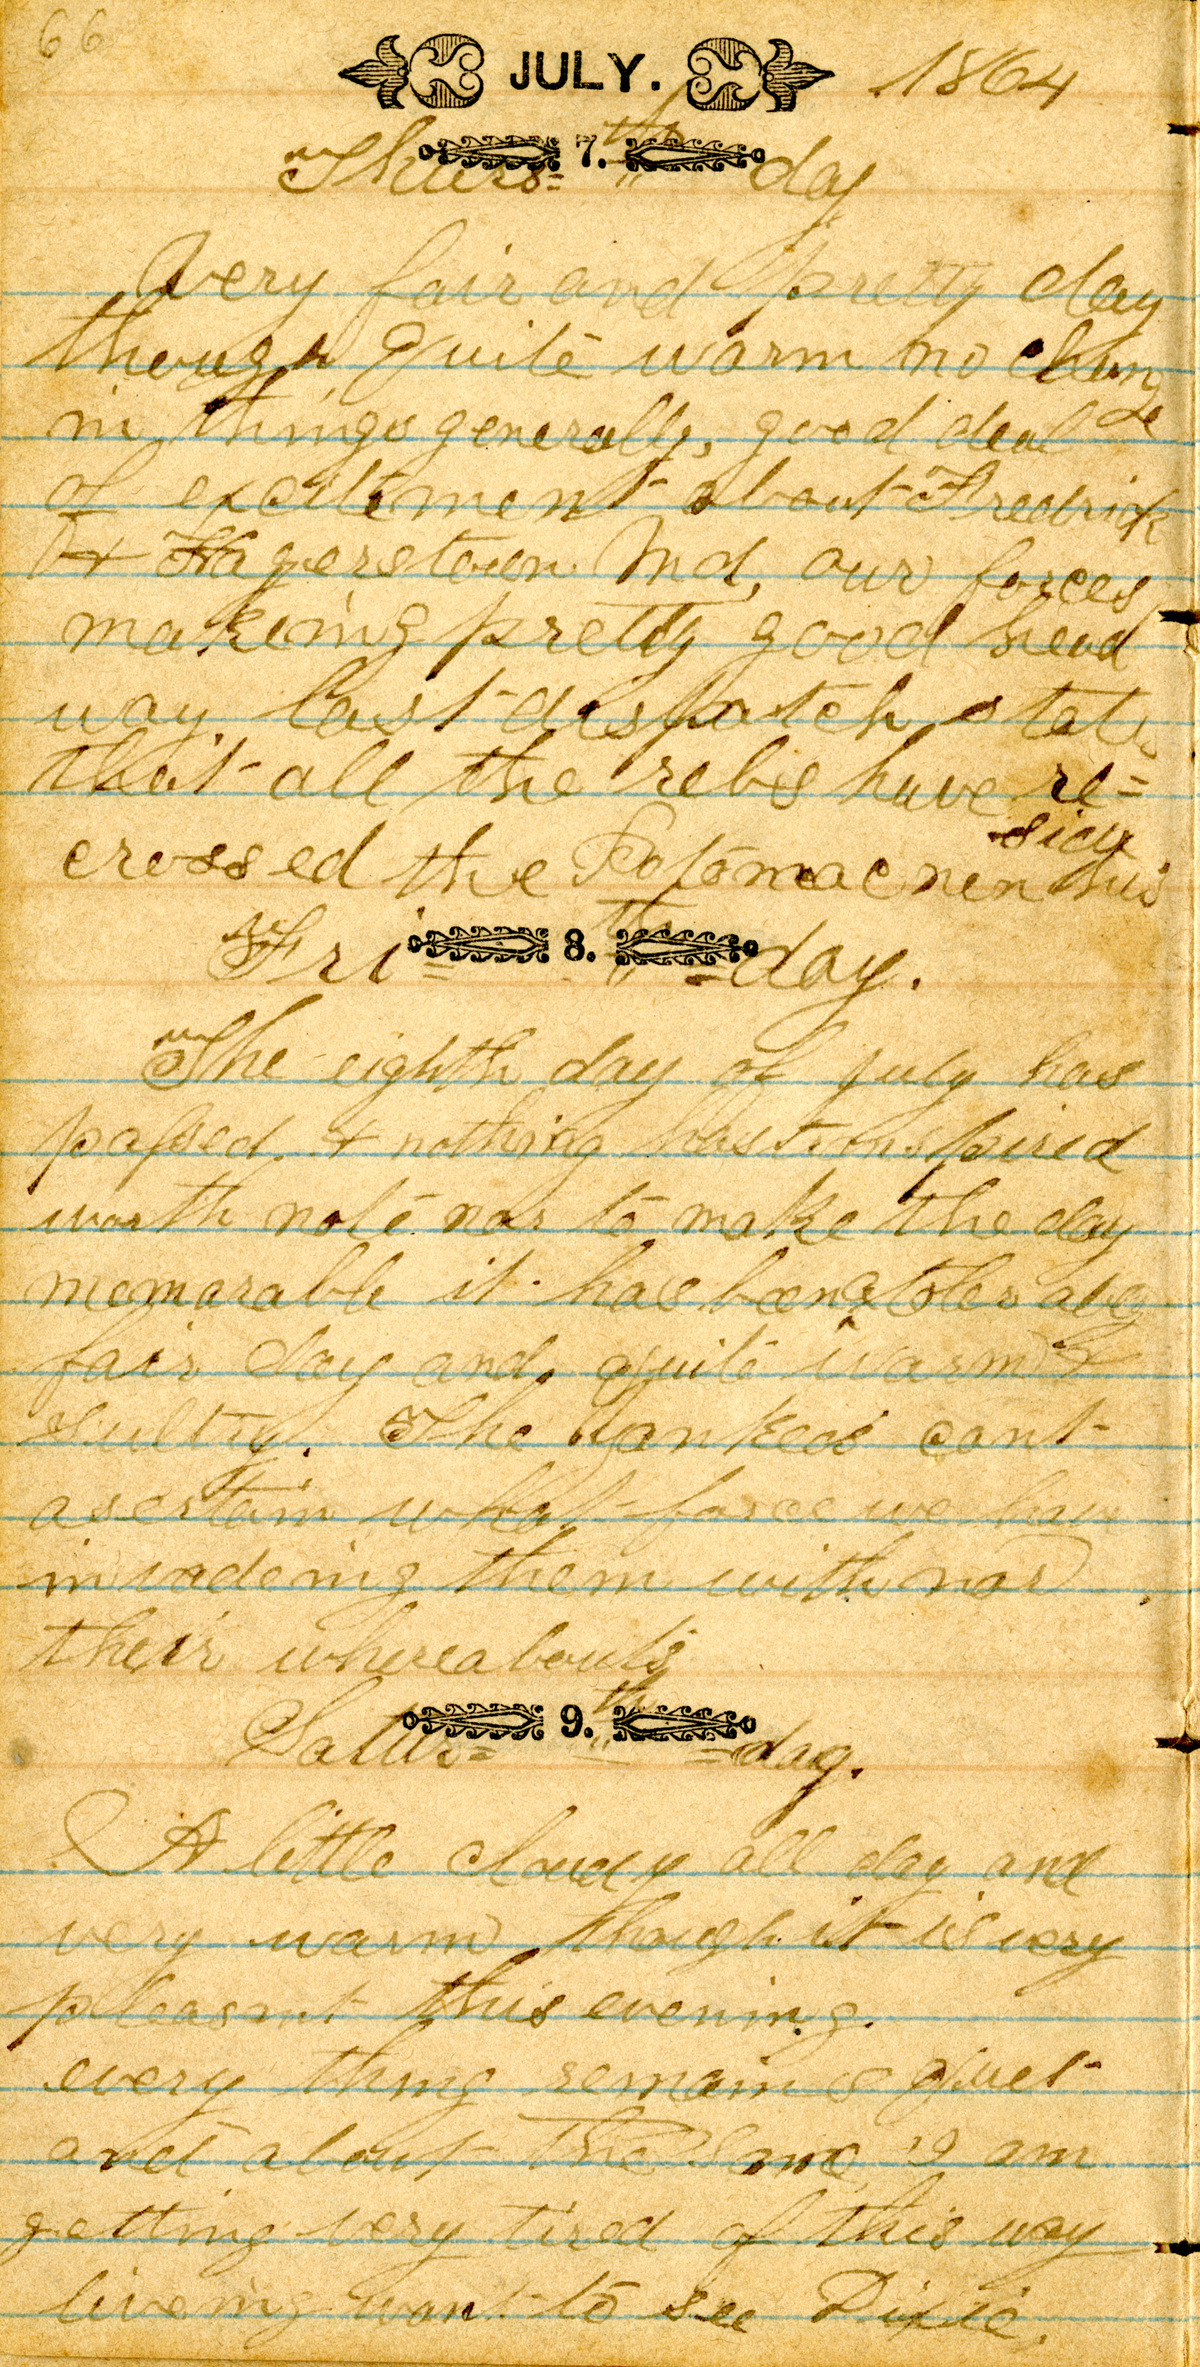 66
JULY. 1864
Thurs= 7.th day
A very fair and pretty day
though quite warm no change
in things generally, good deal
of excitement about Fredrick
& Hagerstown Md, our forces
makeing pretty good head
way, last dispatch states
that all the rebs have re=
crossed the Potomac
Fri= 8.th =day.
The eighth day of july has
passed & nothing has transpired
worth note nor to make the day
memorable it has been a
fair day and quite warm &
sultry. The Yankees cant
asertain what force we have
invadeing them with nor
their whereabouts
Satur= 9.th =day.
A little cloudy all day and
very warm though it is very
pleasnt this evening.
every thing remains quiet
and about the same I am
getting very tired of this way
liveing want to see Dixie.